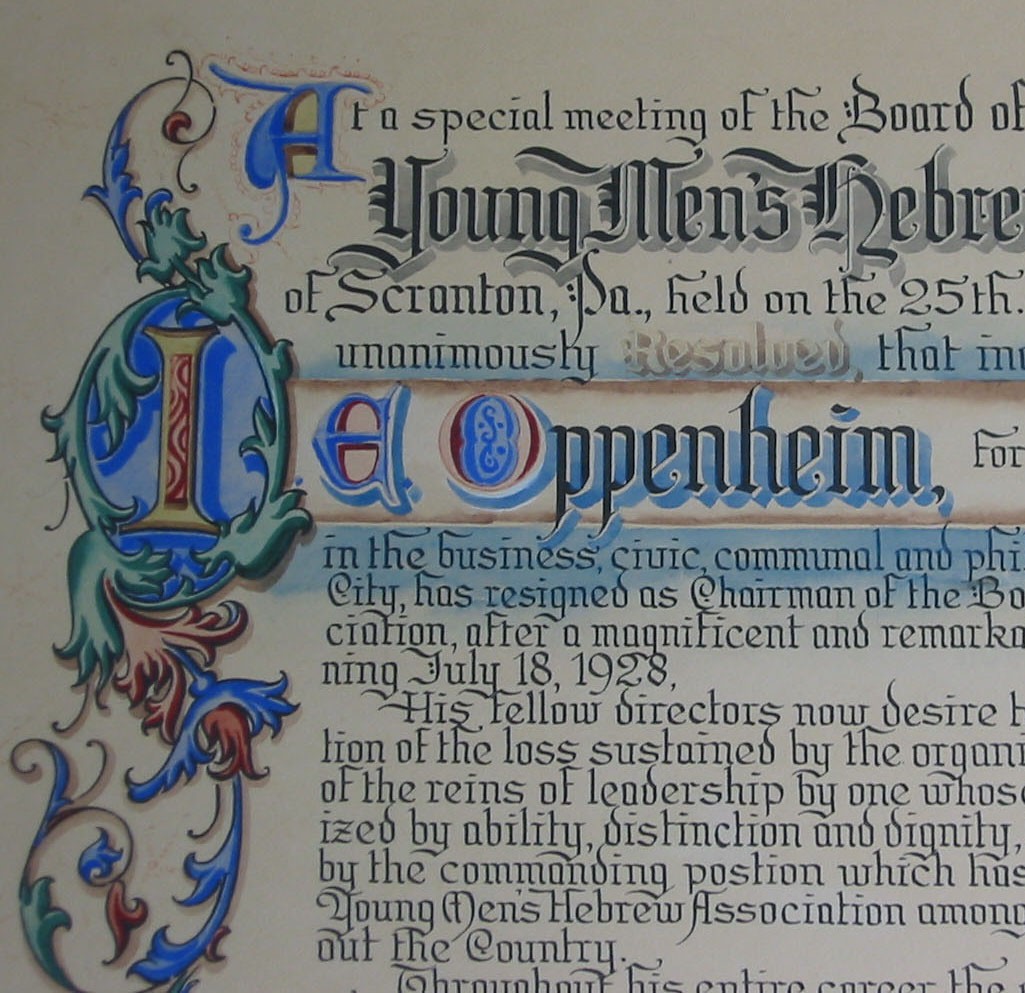 At a special meeting of the Board of
Young Men's Hebre
of Scranton, Pa., held on the 25th.
unanimously Resolved, that in
I. E. Oppenheim, for
in the business, civic, communal and phi
City, has resigned as Chairman of the Bo
ciation, after a magnificent and remarka
ning July 18, 1928,
His fellow directors now desire t
tion of the loss sustained by the organi
of the reins of leadership by one whose
ized by ability, distinction and dignity,
by the commanding postion which has
Young Men's Hebrew Association among
out the Country.
Throughout his entire career the